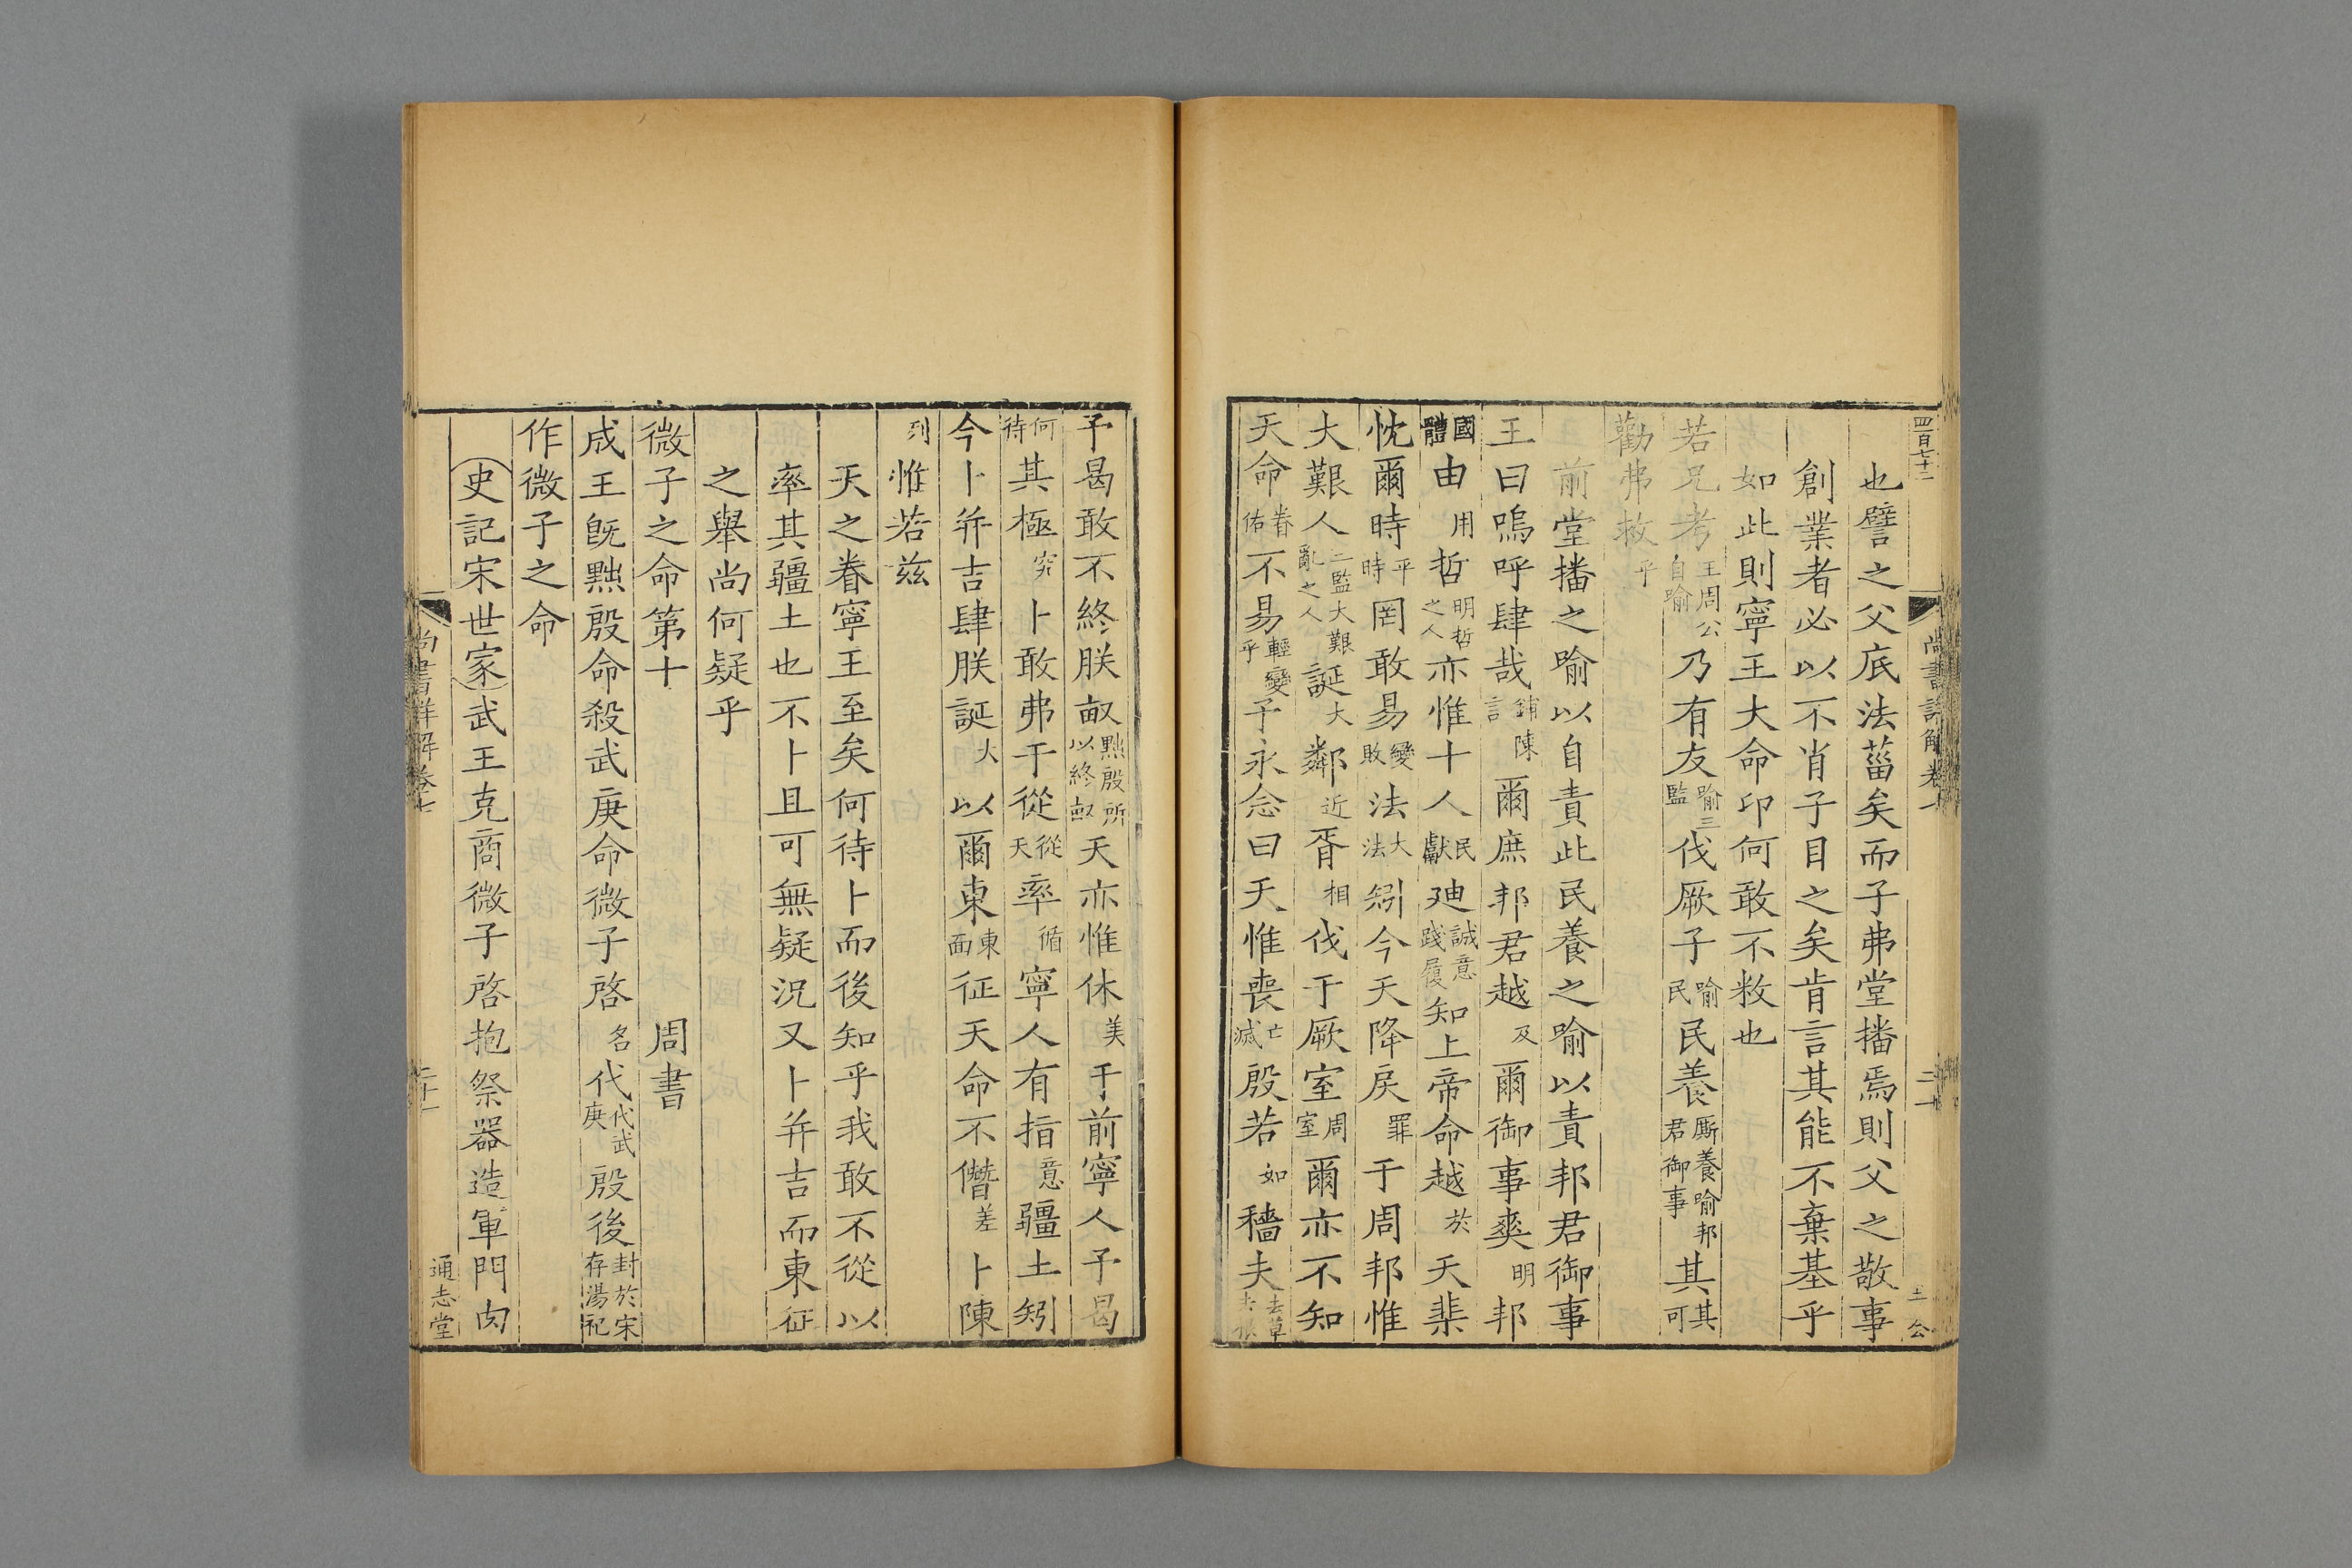 四百七十二
也譬之父底法菑矣而子弗堂播焉則父之敬事
創業者必以不肖子目之矣肯言其能不棄基乎
如此則寧王大命卬何敢不敉也
若兄考王周公自喻乃有友喻三監伐厥子喻民民養厮養喻邦君御事其其可
勸弗救乎
前堂播之喻以自責此民養之喻以責邦君御事
王曰嗚呼肆哉鋪陳言爾庶邦君越及爾御事爽明邦
國體由用哲明哲之人亦惟十人民獻迪誠意踐履知上帝命越於天棐
忱爾時平時罔敢易變敗法大法矧今天降戾罪于周邦惟
大艱人二監大艱亂之人誕大鄰近胥相伐于厥室周室爾亦不知
天命眷佑不易輕變乎予永念曰天惟喪亡滅殷若如穡夫去草
予曷敢不終朕畝黜殷所以終畝天亦惟休美于前寧人予曷
何待其極究卜敢弗于從從天率循寧人有指意疆土矧
今卜并吉肆朕誕大以爾東東面征天命不僭差卜陳
列惟若茲
天之眷寧王至矣何待卜而後知乎我敢不從以
率其疆土也不卜且可無疑況又卜并吉而東征
之舉尚何疑乎
微子之命第十 周書
成王既黜殷命殺武庚命微子啓名代代武庚殷後封於宋存湯祀
作微子之命
史記宋世家武王克商微子啓抱祭器造軍門肉
尚書詳解卷七
通志堂